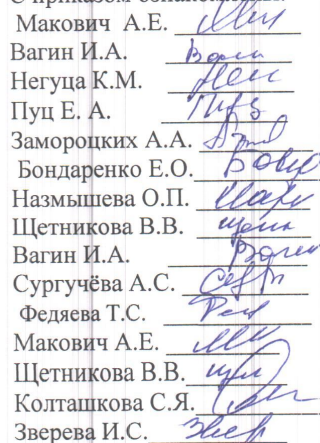 С приказом ознакомлены:
Макович А.Е.
Вагин И.А.
Негуца К.М.
Пуц Е. А.
Замороцких А.А.
Бондаренко Е.О.
Назмышева О.П.
Щетникова В.В.
Вагин И.А.
Сургучёва А.С.
Федяева Т.С.
Макович А.Е.
Щетникова В.В.
Колташкова С.Я.
Зверева И.С.